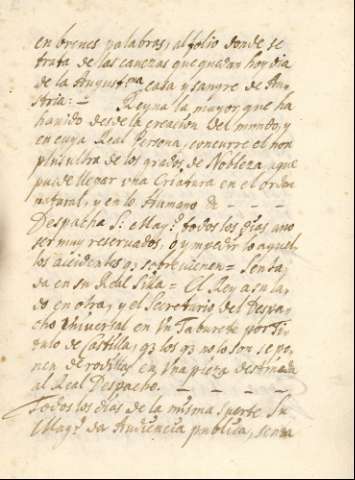 en breues palabras, al folio donde se
trata de las cauezas que quedan hoy dia
de la Augustma casa y sangre de Aus
tria: = Reyna la mayor que ha
hauido desde la creacion del mundo, y
en cuya Real Persona, concurre el non
plusultra de los grados de Nobleza, a que
puede llegar vna Criatura en el orden
natural, y en lo Humano &c - - -
Despacha S: Mag.d todos los dias a no
ser muy reservados, o ympedirlo aquel
los accidentes q3 sobreuienen = Senta
da en su Real Silla = El Rey a su la
do en otra, y el Secretario del Despa
cho Vniversal en Vn Taburete por Ti
tulo de Castilla, q3 los q3 no lo son se po
nen de rodillas en Vna pieza destinada
al Real Despacho. - - - -
Todos los dias de la misma suerte Su
Mag.d da Audiencia publica, senta